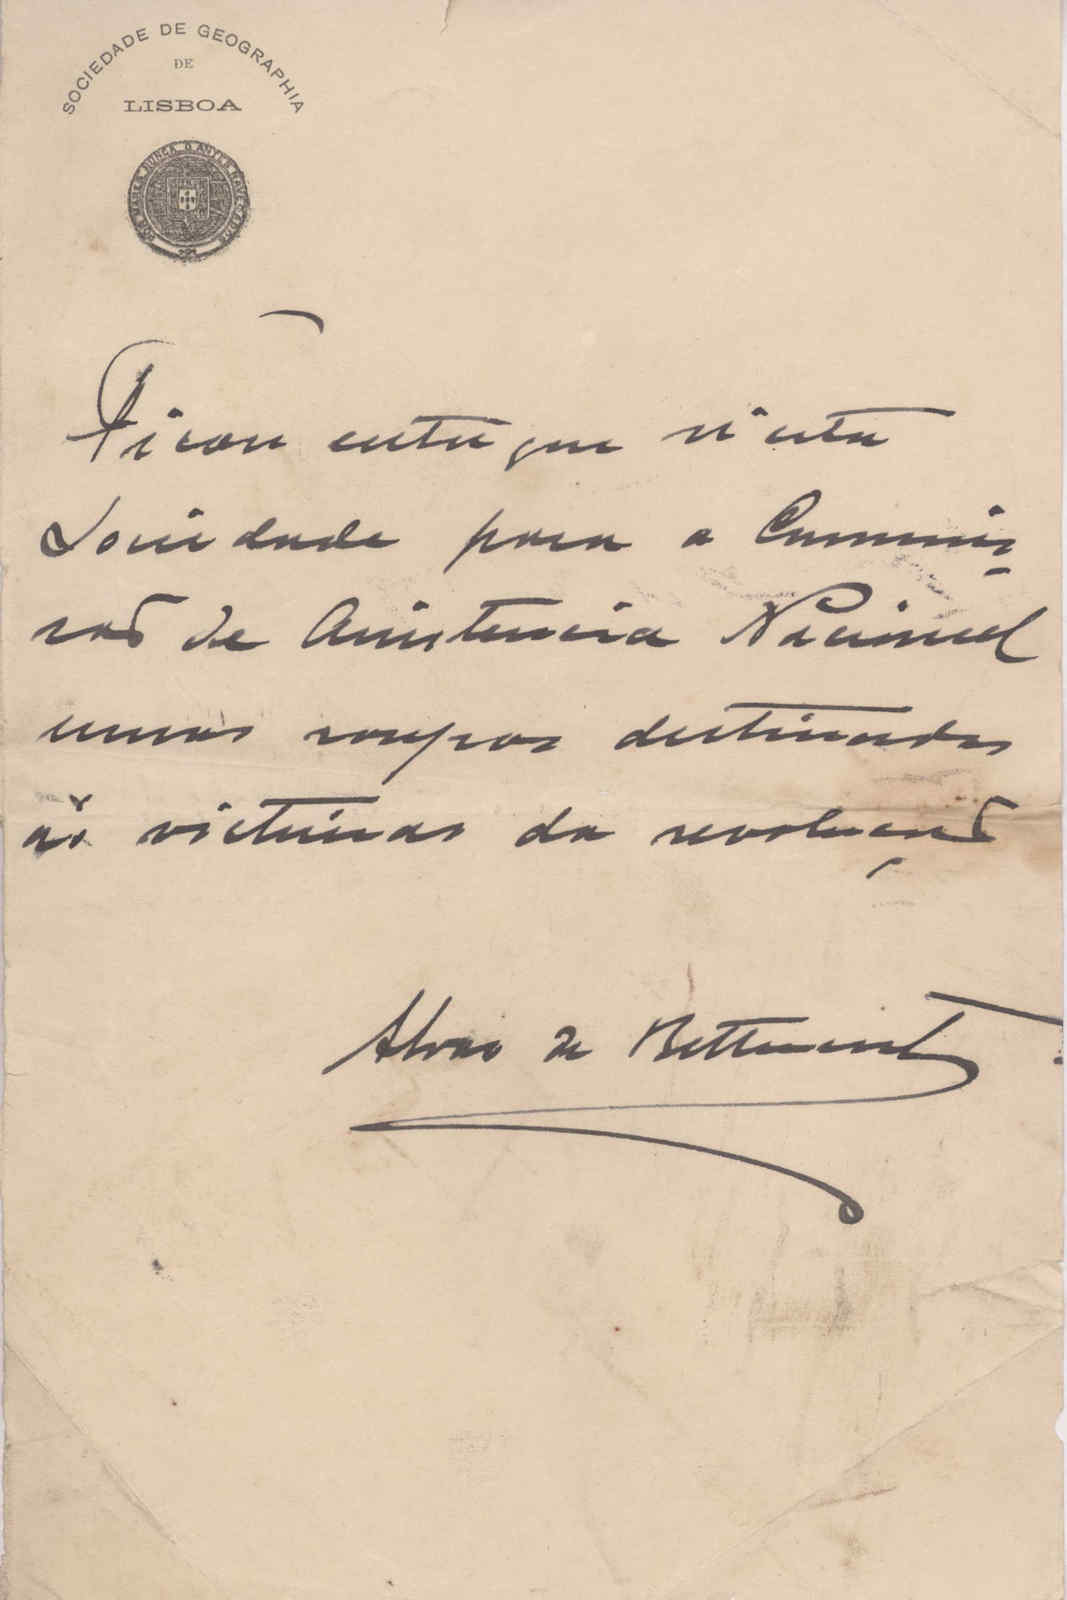 SOCIEDADE DE GEOGRAPHIA
DE
LISBOA
POR MARES NUNCA D'ANTES NAVEGADOS
Ficou entregue n'esta
Sociedade para a Commis-
são de Assistencia Nacional
umas roupas destinadas
ás victimas da revolução
Alvaro de Bettencourt